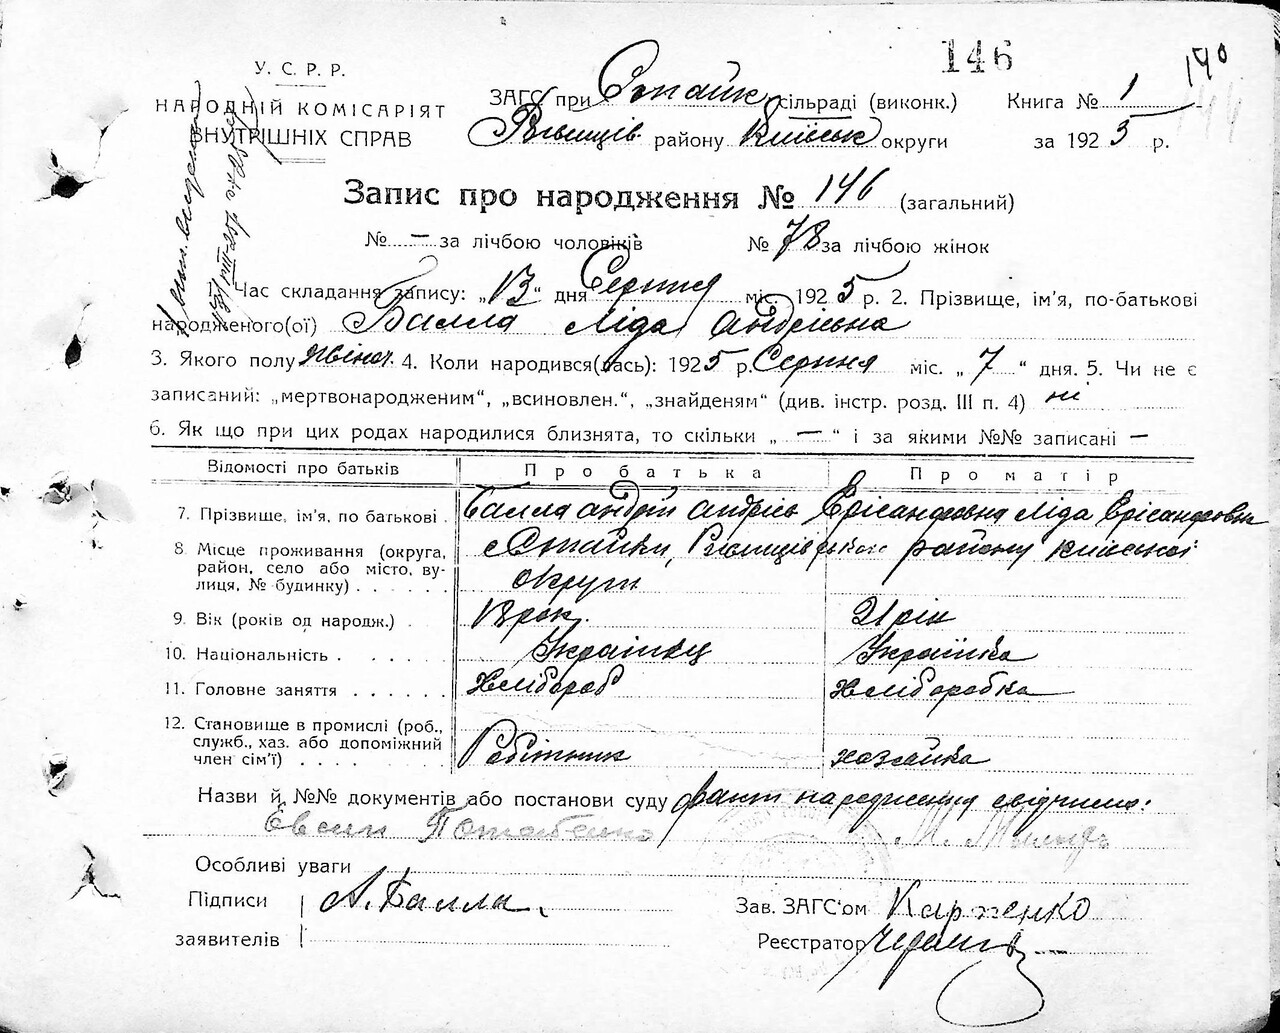 146
140
У. С. Р. Р.
НАРОДНІЙ КОМІСАРІЯТ
ВНУТРІШНІХ СПРАВ
ЗАГС при Стайк. сільраді (виконк.) Книга № 1
Ржищів. району Київськ округи за 1925 р.
Запис про народження № 146 (загальний)
№ — за лічбою чоловіків № 78 за лічбою жінок
1. Час складання запису: „13“ дня Серпня міс. 1925 р. 2. Прізвище, ім’я, по-батькові
народженого(ої) Балла Ліда Андрієвна
3. Якого полу жіноч. 4. Коли народився(лась): 1925 р. Серпня міс. „7“ дня. 5. Чи не є
записаний: „мертвонародженим“, „всиновлен.“, „знайденям“ (див. інстр. розд. III п. 4) ні
6. Як що при цих родах народилися близнята, то скільки „—“ і за якими №№ записані —
Відомості про батьків Про батька Про матір
7. Прізвище, ім’я, по батькові Балла Андрій Андріів Ліда
8 Місце проживання (округа, Стайки, Ржищівського району Київської
район, село або місто, ву-
лиця, № будинку) округи
9. Вік (років од народж.) рок. 21 рік
10. Національність Українець Українка
11. Головне заняття Хлібороб Хліборобка
12. Становище в промислі (роб.,
служб., хаз. або допоміжний
член сім’ї) Робітник хазяйка
Назви й №№ документів або постанови суду факт народження свідчили:
Євсей Потапенко М.
Особливі уваги
Підписи А. Балла. Зав. ЗАГС‘ом Карпенко
заявителів Реєстратор